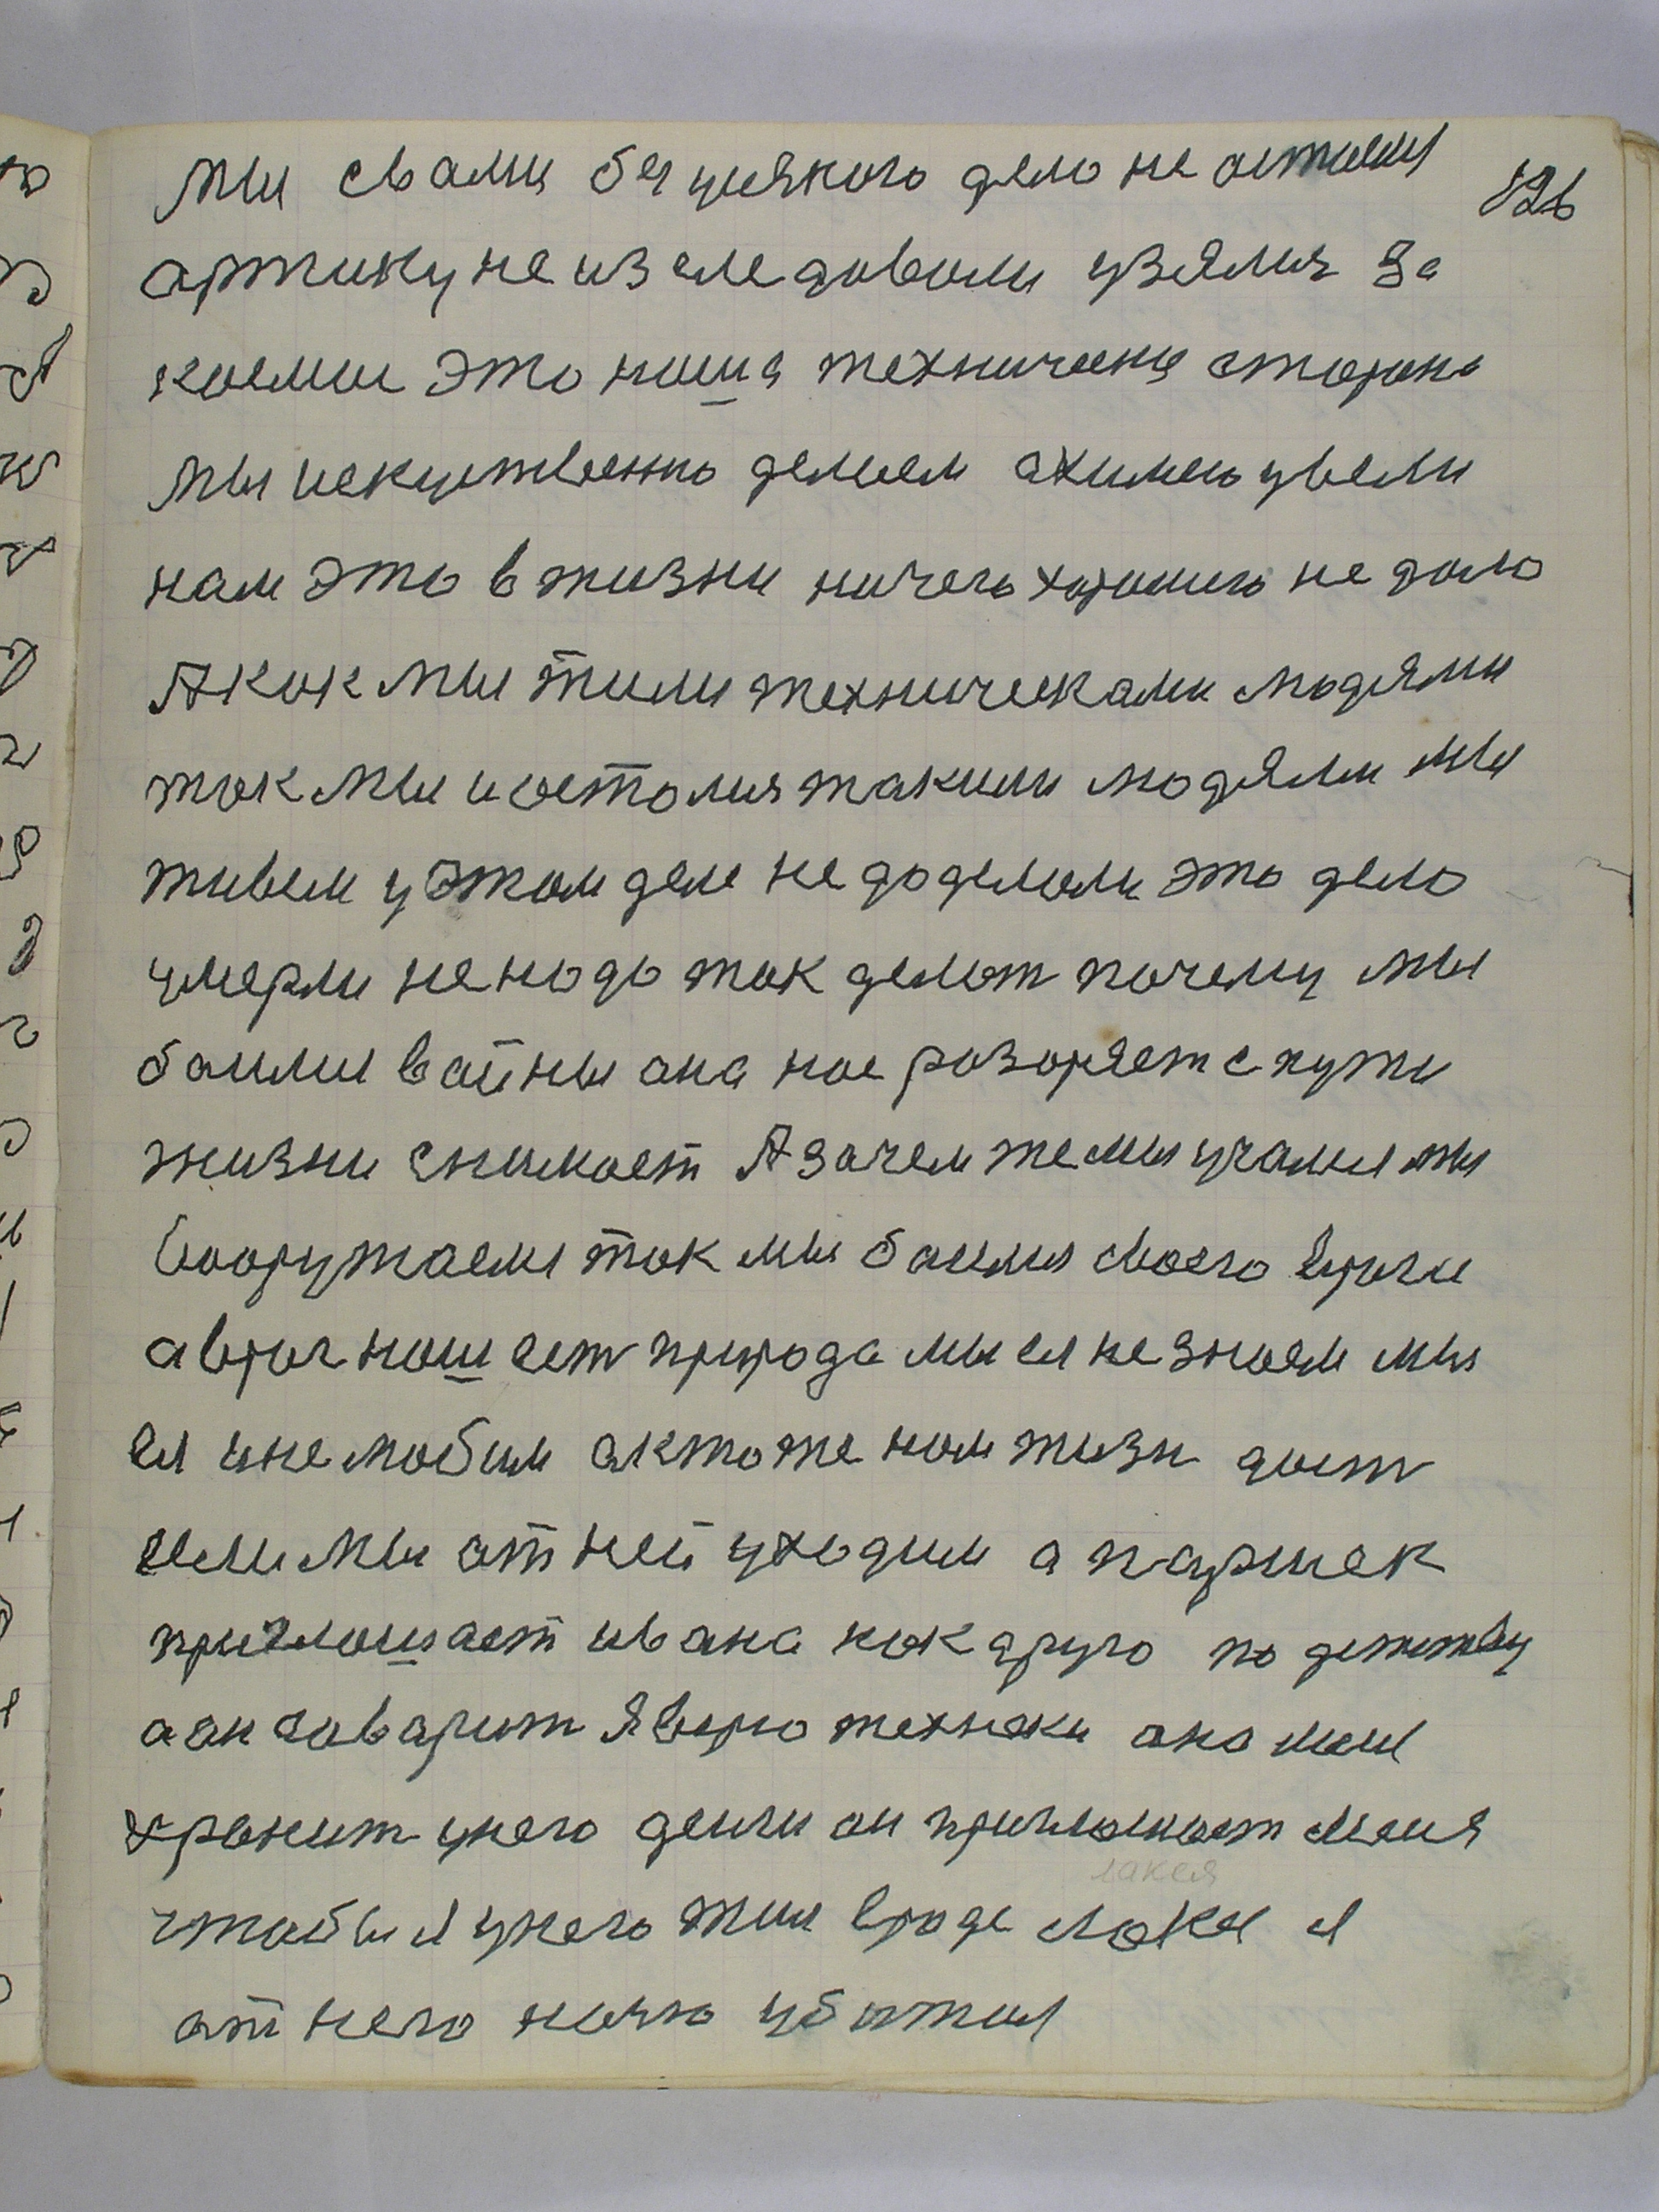 мы свами без усякого дело не астаемся 126
артику не изследовали узялись за
космос это наша техническия сторона
мы искуственно делаем ахимею увели
нам это в жизни ничего хорошего не дало
А как мы жили техническами людями
так мы и осталися такими людями мы
живем у этом деле не доделали это дело
умерли не надо так делат почему мы
баимся вайны ана нас разоряет с пути
жизни снимает А зачем же мы учамся мы
вооружаемся так мы баимся своего врага
а враг наш ест природа мы ея не знаем мы
ея и не любим а кто же нам жизн даст
если мы ат ней уходим а паршек
приглашает ивана как друга по детству
а он гаварит Я верю техники ана
хранит у него денги он приглашает меня
лакея
чтобы я у него жил вроде лакея я
ат него начю убежал